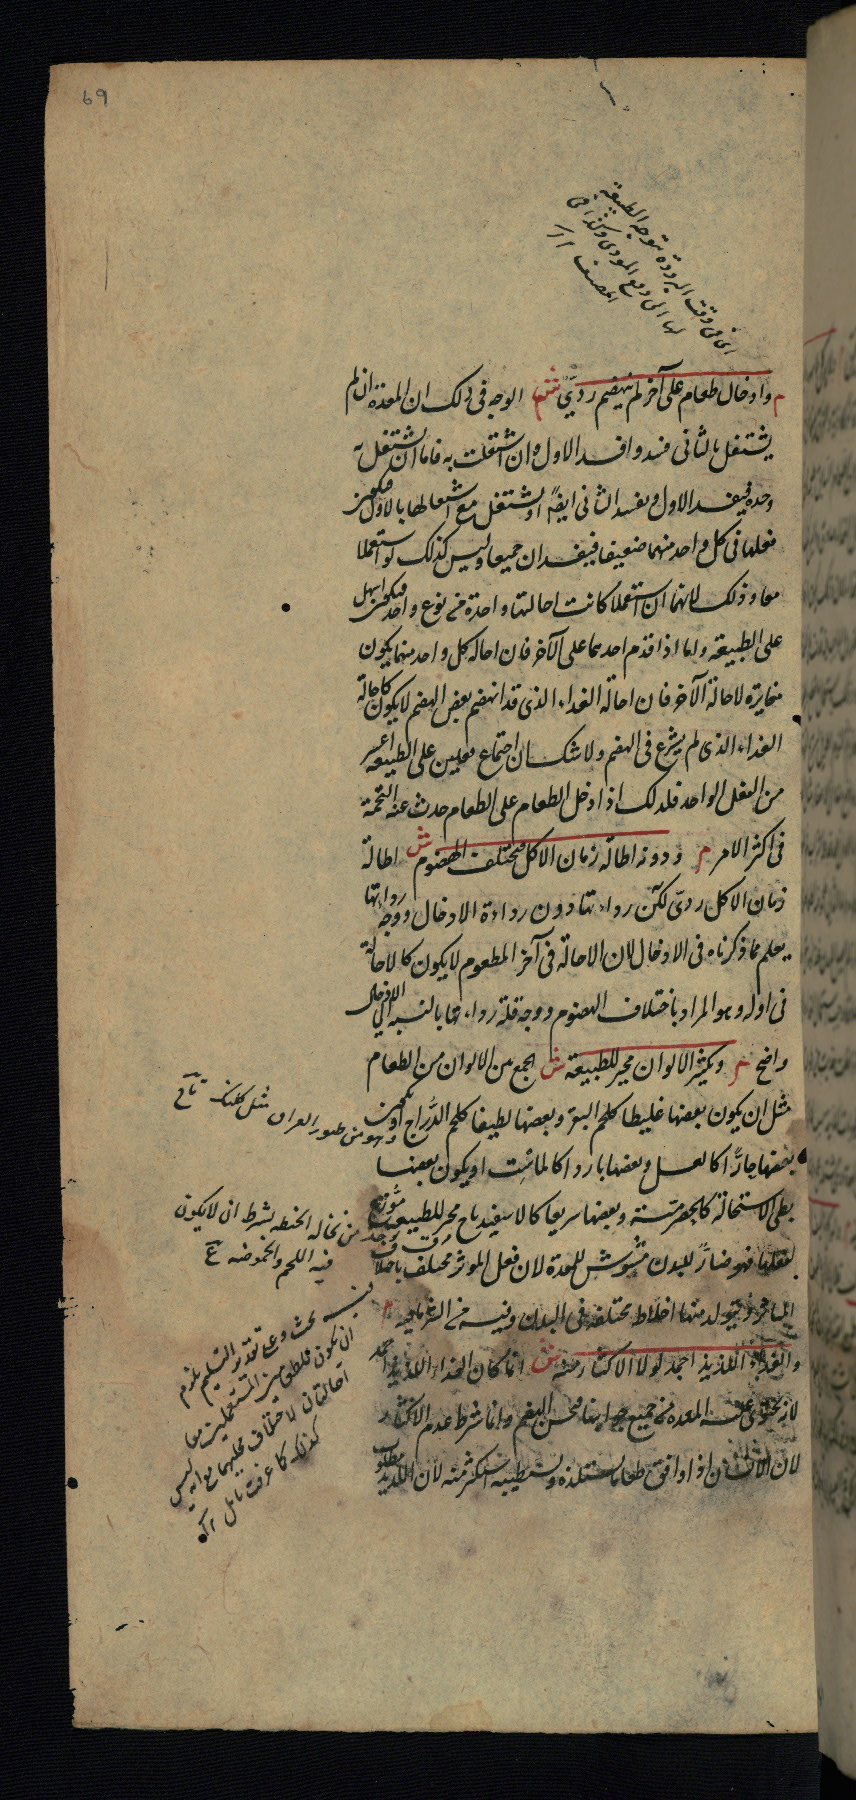 69
اى فى وقت البرودة تتوجه الطبيعة
م وادخال طعام على آخر لم ينهضم ردىّ ش الوجه فى ذلك ان المعدة ان لم
يشتغل بالثانى فسد وافسد الاول وان اشتغلت به فاما ان يشتغل به
وحده فيفسد الاول ويفسد الثانى ايضًا او يشتغل مع اشتغالها بالاول فيكون
فعلها فى كل واحد منهما ضعيفا فيفسدان جميعا وليس كذلك لو استعملا
معا وذلك لانهما ان استعملا كانت احالتها واحدة من نوع واحد فيكون اسهل
على الطبيعة واما اذا قدم احدهما على الآخر فان احالة كل واحد منهما يكون
مغايرة لاحالة الآخر فان احالة الغداء الذى قد انهضم بعض الهضم لا يكون كاحالة
الغداء الذى لم يشرع فى الهضم ولا شك ان اجتماع فعلين على الطبيعة اعسر
من الفعل الواحد فلذلك اذا ادخل الطعام على الطعام حدث عنه التخمة
فى اكثر الامر م ودونه اطالة زمان الاكل فيختلف الهضوم ش اطالة
زمان الاكل ردىّ لكن رداءتها دون رداءة الادخال ووجه رداءتها
يعلم مما ذكرناه فى الادخال لان الاحالة فى آخر المطعوم لا يكون كالاحالة
فى اوله وهو المراد باختلاف الهضوم ووجه قلة رداءتها بالنسبة الى الادخال
واضح م وتكثير الالوان محير للطبيعة ش الجمع بين الالوان من الطعام
مثل ان يكون بعضها غليظا كلحم البقر وبعضها لطيفا كلحم الدُّراج او يكون
بعضها حارًّا كالعسل وبعضها باردا كالماست او يكون بعضها
بطى الاستحالة كالهريسة وبعضها سريعا كالاسفيدناج محير للطبيعة
لفعلها فهو ضارّ للبدن مشوش للمعدة لان فعل الموثر مختلف باختلاف
المتاثر ويتولد منها اخلاط مختلفة فى البدن وفيه من الضرر ما فيه م
والغداء اللذيذ احمد لولا الاكثار منه ش انما كان الغداء اللذيذ احمد
لانه يحتوى عليه المعدة من جميع جوانبها فيحسن الهضم وانما شرط عدم الاكثار
لان الانسان اذا وافق طعاما يستلذه ويستطيبه استكثر منه لان اللذيذ مطلوب
وهو من طيور العراق مثل كلنك
من نخالة الحنطة بشرط ان لا يكون
فيه اللحم والحموضة
فيه بحث وعلى تقدير التسليم يلزم